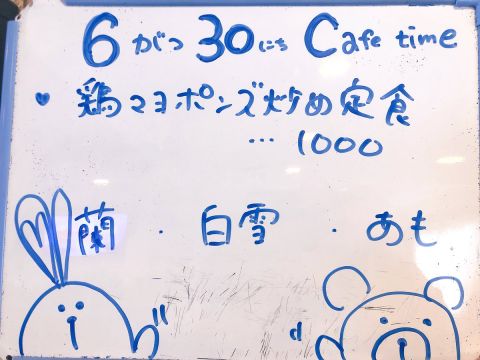 6がつ30にち Cafe time
♥ 鶏マヨポンズ炒め定食
… 1000
蘭 ・ 白雪 ・ あも